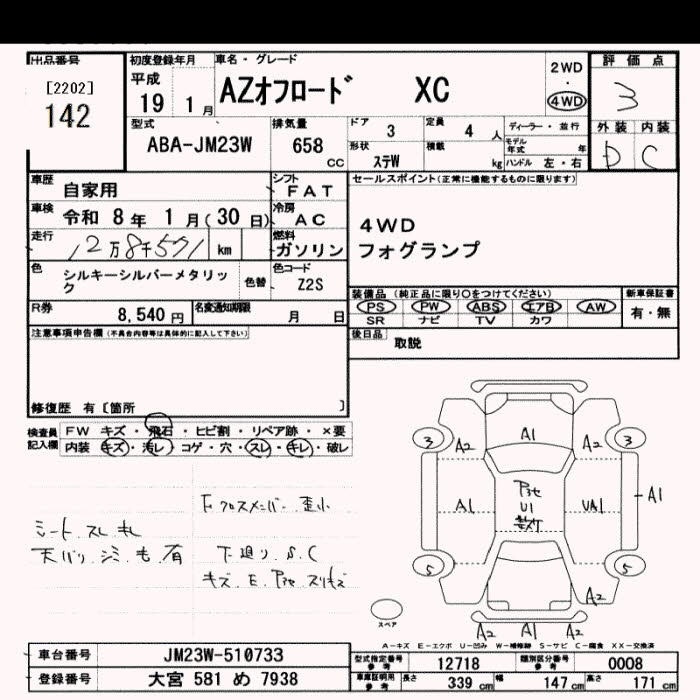 出品番号 初度登録年月 車名・グレード 評価点
[2202] 平成 2WD
142 19 1月 AZオフロード XC ・ 3
4WD
型式 排気量 ドア 3 定員 4 人 ディーラー・並行 外装 内装
ABA-JM23W 658 CC 形状 ステW 積載 kg モデル年式 年 D C
ハンドル 左・右
車歴 自家用 シフト FAT セールスポイント(正常に機能するものに限ります)
車検 令和 8年 1月(30日) 冷房 AC 4WD
走行 12万8千571 km 燃料 ガソリン フォグランプ
色 シルキーシルバーメタリック 色替 色コード Z2S
装備品 (純正品に限り○をつけてください) 新車保証書
R券 8,540円 名変通知期限 月 日 PS PW ABS エアB AW 有・無
SR ナビ TV カワ
注意事項申告欄 (不具合内容等は具体的に記入して下さい) 後日品 取説
修復歴 有〔箇所 〕
検査員記入欄 FW キズ・飛石・ヒビ割・リペア跡・×要
内装 キズ・汚レ・コゲ・穴・スレ・キレ・破レ
3 A2 A1 A2 3
A1 UA1 A1
U1
5 5
A2
A2 A1 A2
Fクロスメンバー 歪小
シート スレ キレ
天バリ シミ も 有 下廻り S.C
スペア
A-キズ E-エクボ U-凹み W-補修跡 S-サビ C-腐食 XX-交換済
車台番号 JM23W-510733 型式指定番号 参考 12718 類別区分番号 参考 0008
登録番号 大宮 581 め 7938 車庫証明用 参考 長さ 339 cm 幅 147 cm 高さ 171 cm